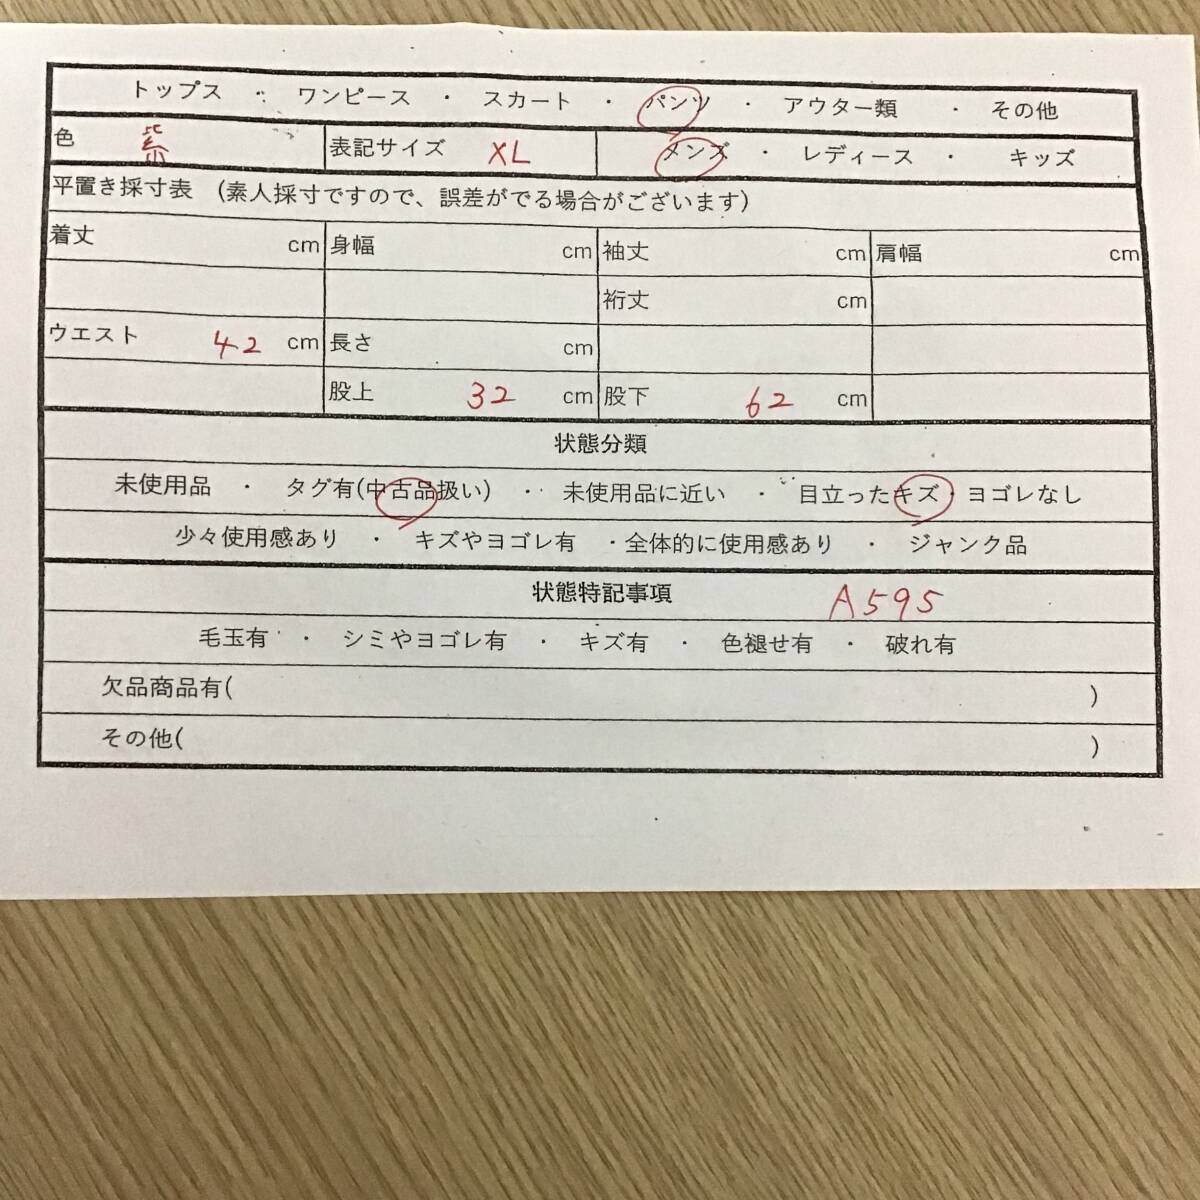 トップス ・ ワンピース ・ スカート ・ パンツ ・ アウター類 ・ その他
色 紫 表記サイズ XL メンズ ・ レディース ・ キッズ
平置き採寸表 (素人採寸ですので、誤差がでる場合がございます)
着丈 cm 身幅 cm 袖丈 cm 肩幅 cm
裄丈 cm
ウエスト 42 cm 長さ cm
股上 32 cm 股下 62 cm
状態分類
未使用品 ・ タグ有(中古品扱い) ・ 未使用品に近い ・ 目立ったキズ・ヨゴレなし
少々使用感あり ・ キズやヨゴレ有 ・全体的に使用感あり ・ ジャンク品
状態特記事項 A595
毛玉有 ・ シミやヨゴレ有 ・ キズ有 ・ 色褪せ有 ・ 破れ有
欠品商品有( )
その他( )